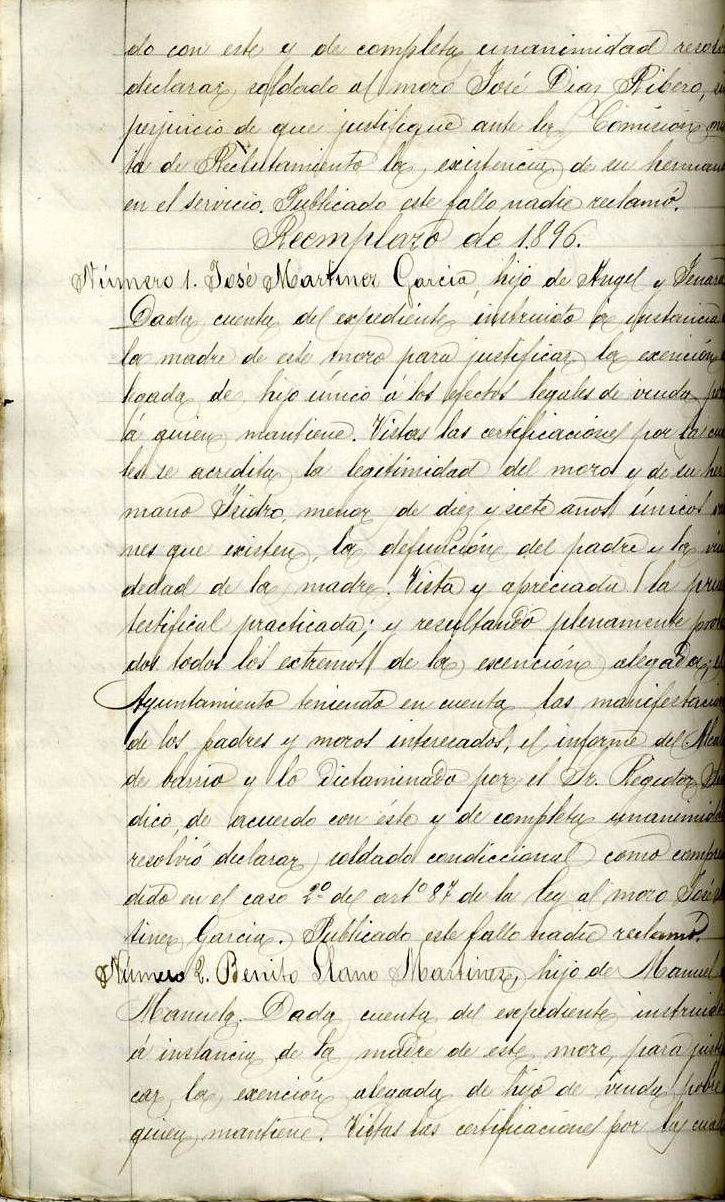 do con este y de completa unanimidad resol
declarar soldado al mozo José Diaz Ribero, 
perjuicio de que justifique ante la Comisión mix
ta de Reclutamiento la existencia de su herman
en el servicio. Publicado este fallo nadie reclamó.
Reemplazo de 1.896.
Número 1. José Martinez Garcia, hijo de Angel y Genara
Dada cuenta del expediente instruido á instancia
la madre de este mozo para justificar la exención
legada de hijo único á los efectos legales de viuda po
á quien mantiene. Vistas las certificaciones por las cua
les se acredita la legitimidad del mozo y de su her
mano Isidro, menor de diez y siete años únicos
nes que existen, la defunción del padre y la viu
dedad de la madre. Vista y apreciada la prue
testifical practicada; y resultando plenamente proba
dos todos los extremos de la exención alegada; el
Ayuntamiento teniendo en cuenta las manifestacion
de los padres y mozos interesados, el informe del Alcal
de barrio y lo dictaminado por el Sr. Regidor Sin
dico, de acuerdo con éste y de completa unanimida
resolvió declarar soldado condiccional como compren
dido en el caso 2º del artº 87 de la ley al mozo José
tinez Garcia. Publicado este fallo nadie reclamó.
Número 2. Benito Llano Martinez, hijo de Manuel
Manuela. Dada cuenta del expediente instruido
á instancia de la madre de este mozo para justifi
car la exención alegada de hijo de viuda pobre
quien mantiene. Vistas las certificaciones por las cual